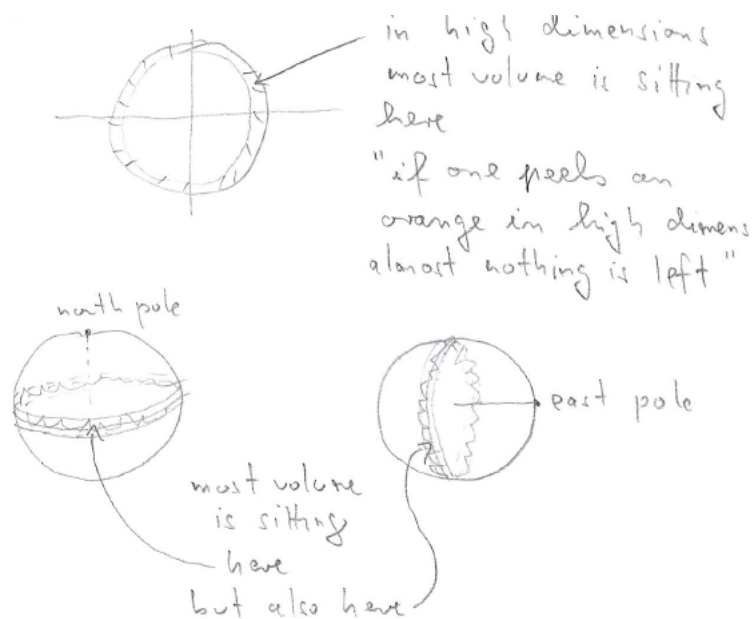 in high dimensions
most volume is sitting
here
"if one peels an
orange in high dimens
almost nothing is left"
north pole
east pole
most volume
is sitting
here
but also here